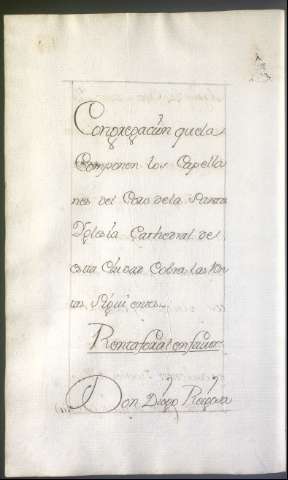 Congregacion que la
Componen los Capella
nes del Coro de la Santa
Yglesia Cathedral de
esta Ciudad Cobra las Ren
tas Siguientes
Renta
Don Diego